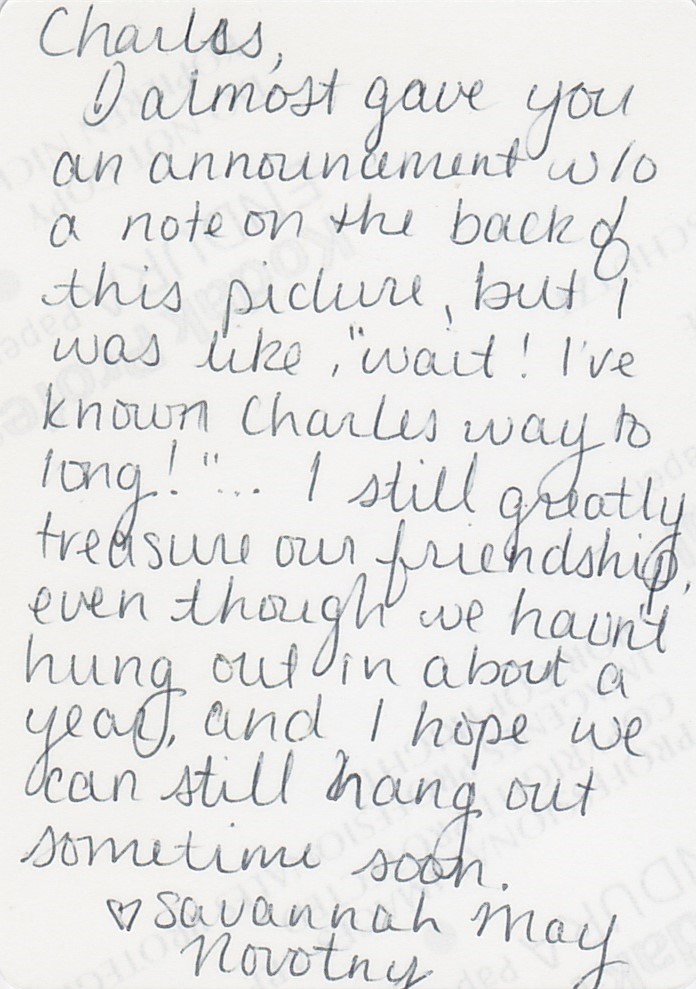 Charles,
I almost gave you
an announcement w/o
a note on the back of
this picture, but I
was like, "wait! I've
known Charles way to
long!"... I still greatly
treasure our friendship,
even though we havn't
hung out in about a
year, and I hope we
can still hang out
sometime soon.
♡ Savannah May
Novotny